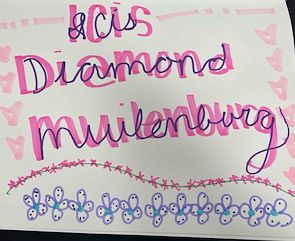 Acis
Diamond
Muilenburg